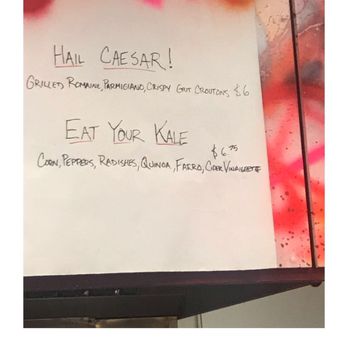 HAIL CAESAR!
GRILLED ROMAINE, PARMIGIANO, CRISPY GRIT CROUTONS $6
EAT YOUR KALE
$6.75
CORN, PEPPERS, RADISHES, QUINOA, FARRO, CIDER VINAIGRETTE